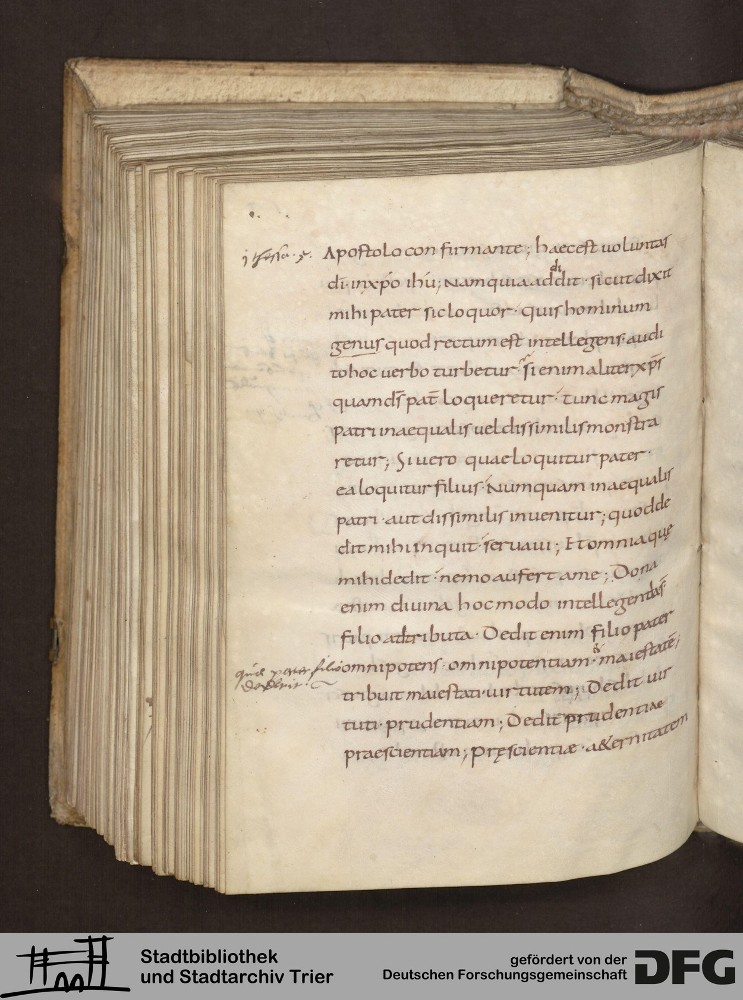 1 Thessa. 5.
Apostolo confirmante; haec est uoluntas
di͞ in xp͞o ihu͞; Nam quia addidit · sicut dixit
mihi pater sic loquor · quis hominum
genus quod rectum est intellegens · audi
to hoc uerbo turbetur · si enim aliter xp͞s
quam d͞s pat͞ loqueretur · tunc magis
patri inaequalis uel dissimilis monstra
retur; Si uero quae loquitur pater ·
ea loquitur filius · Numquam inaequalis
patri · aut dissimilis inuenitur; quod de
dit mihi inquit · seruaui; Et omnia quę
mihi dedit · nemo aufert a me; Dona
enim diuina hoc modo intellegendas͞
filio adtributa · Dedit enim filio pater
quid pater filio
dederit.
omnipotens · omnipotentiam · maiestatē;
tribuit maiestati uirtutem; Dedit uir
tuti · prudentiam; Dedit prudentiae
praescientiam; Pręscientiæ · a&ernitatem
Stadtbibliothek
und Stadtarchiv Trier
gefördert von der
Deutschen Forschungsgemeinschaft
DFG